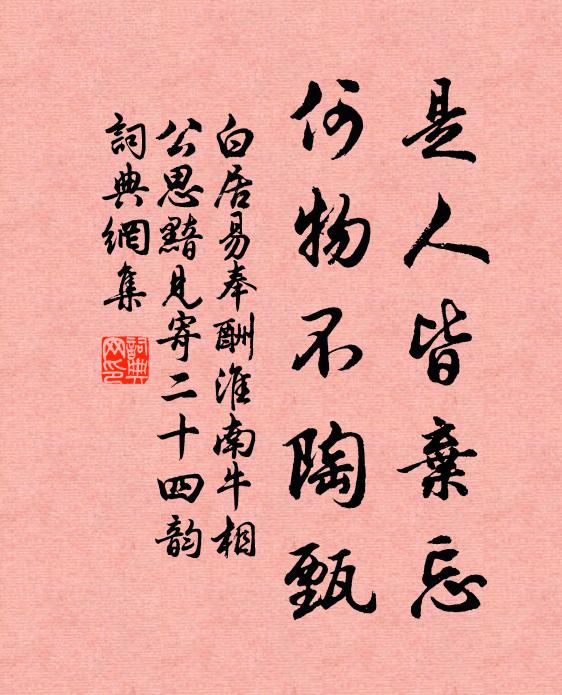 是人皆棄忘
何物不陶甄
白居易奉酬淮南牛相
公思黯見寄二十四韵
詞典網集
詞典
网印